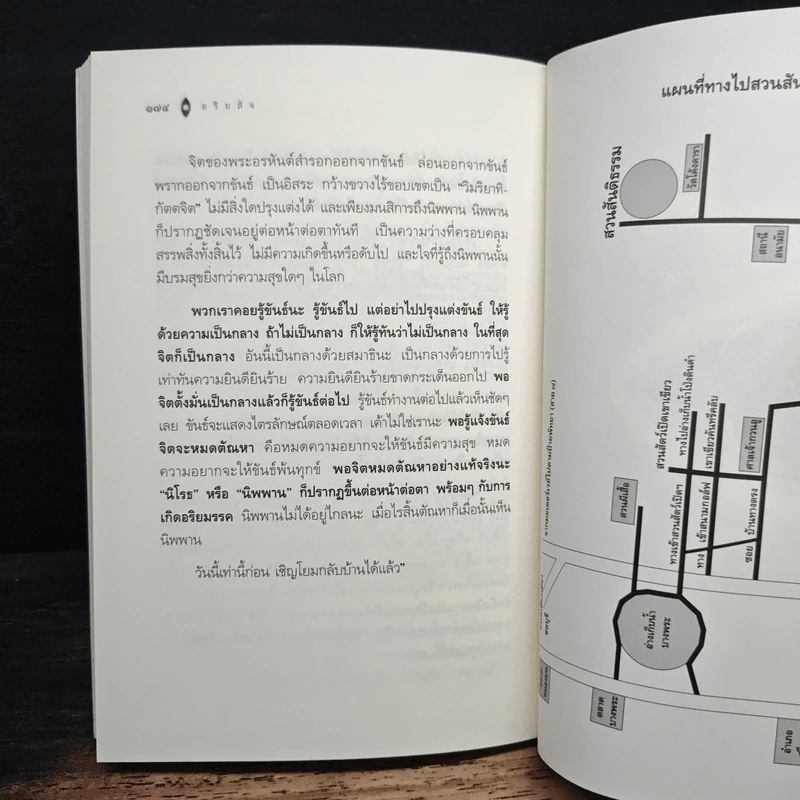 ๑๗๔ อริยสัจ
จิตของพระอรหันต์สำรอกออกจากขันธ์ ล่อนออกจากขันธ์
พรากออกจากขันธ์ เป็นอิสระ กว้างขวางไร้ขอบเขตเป็น “วิมริยาทิ-
กัตตจิต” ไม่มีสิ่งใดปรุงแต่งได้ และเพียงมนสิการถึงนิพพาน นิพพาน
ก็ปรากฏชัดเจนอยู่ต่อหน้าต่อตาทันที เป็นความว่างที่ครอบคลุม
สรรพสิ่งทั้งสิ้นไว้ ไม่มีความเกิดขึ้นหรือดับไป และใจที่รู้ถึงนิพพานนั้น
มีบรมสุขยิ่งกว่าความสุขใดๆ ในโลก
พวกเราคอยรู้ขันธ์นะ รู้ขันธ์ไป แต่อย่าไปปรุงแต่งขันธ์ ให้รู้
ด้วยความเป็นกลาง ถ้าไม่เป็นกลาง ก็ให้รู้ทันว่าไม่เป็นกลาง ในที่สุด
จิตก็เป็นกลาง อันนี้เป็นกลางด้วยสมาธินะ เป็นกลางด้วยการไปรู้
เท่าทันความยินดียินร้าย ความยินดียินร้ายขาดกระเด็นออกไป พอ
จิตตั้งมั่นเป็นกลางแล้วก็รู้ขันธ์ต่อไป รู้ขันธ์ทำงานต่อไปแล้วเห็นชัดๆ
เลย ขันธ์จะแสดงไตรลักษณ์ตลอดเวลา เค้าไม่ใช่เรานะ พอรู้แจ้งขันธ์
จิตจะหมดตัณหา คือหมดความอยากจะให้ขันธ์มีความสุข หมด
ความอยากจะให้ขันธ์พ้นทุกข์ พอจิตหมดตัณหาอย่างแท้จริงนะ
“นิโรธ” หรือ “นิพพาน” ก็ปรากฏขึ้นต่อหน้าต่อตา พร้อมๆ กับการ
เกิดอริยมรรค นิพพานไม่ได้อยู่ไกลนะ เมื่อไรสิ้นตัณหาก็เมื่อนั้นเห็น
นิพพาน
วันนี้เท่านี้ก่อน เชิญโยมกลับบ้านได้แล้ว”
แผนที่ทางไปสวนสัน
สวนสันติธรรม
วัดโค้งดารา
สถานี
อนามัย
สวนสัตว์เปิดเขาเขียว
ทางไปอ่างเก็บน้ำโป่งดินดำ
เขาเขียวคันทรีคลับ
ศาลเจ้ากวนอู
สวนผีเสื้อ
ทางเข้าสวนสัตว์เปิดฯ
ทาง เข้าสนามกอล์ฟ
ซอย บ้านทางตรง
อ่างเก็บน้ำ
บางพระ
ชลบุรี
ตลาด
บางพระ
อำเภอ